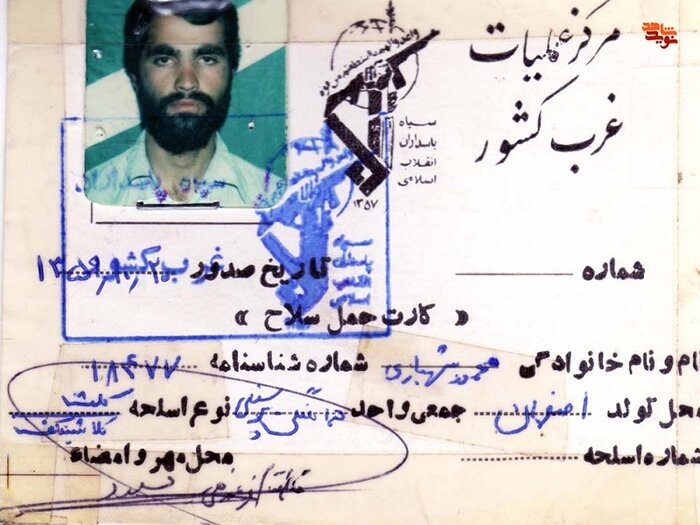 نوید شاهد
مرکز عملیات
غرب کشور
سپاه
پاسداران
انقلاب
اسلامی
۱۳۵۷
شماره
تاریخ صدور
« کارت حمل سلاح »
نام و نام خانوادگی محمود شهبازی شماره شناسنامه ۱۸۴۷۷
محل تولد اصفهان جمعی واحد نوع اسلحه کلت
کلاشینکف
شماره اسلحه محل مهر و امضاء